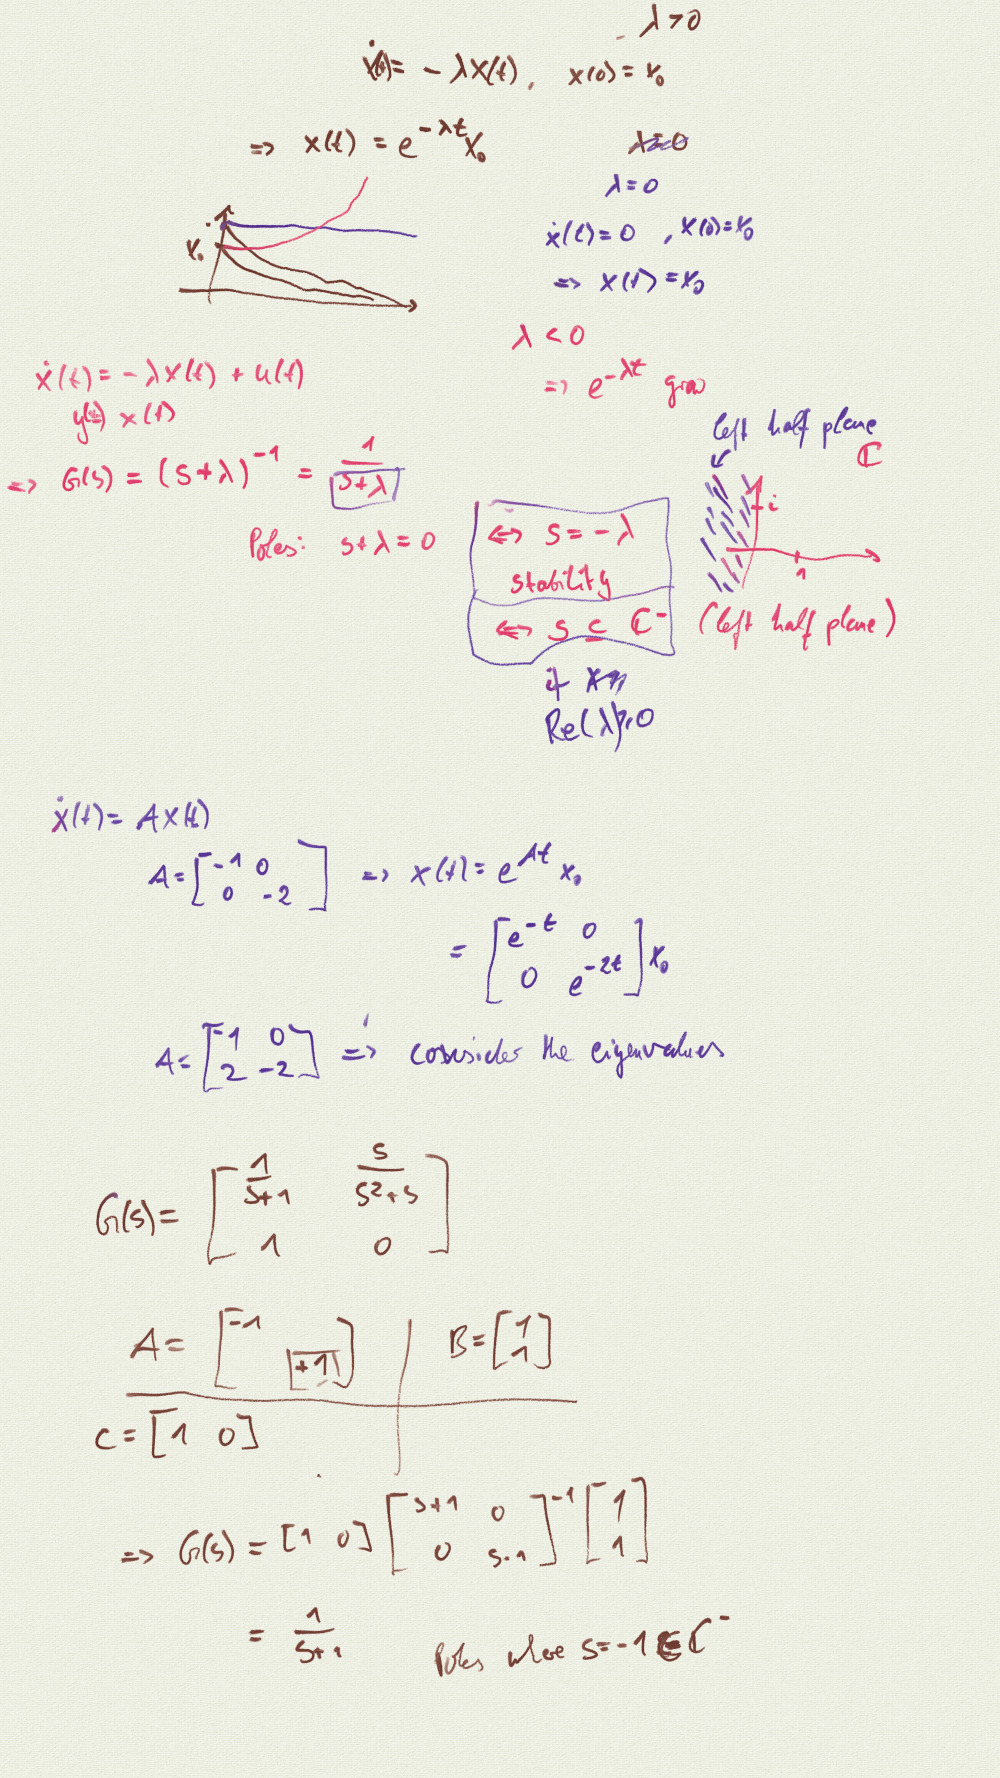 λ > 0
ẋ(t) = - λx(t), x(0) = x₀
=> x(t) = e^{-λt} x₀
λ = 0
x₀
ẋ(t) = 0 , x(0) = x₀
=> x(t) = x₀
λ < 0
=> e^{-λt} grow
ẋ(t) = - λx(t) + u(t)
y(t) = x(t)
=> G(s) = (s + λ)^{-1} = 1/(s+λ)
Poles: s+λ = 0
<=> s = -λ
stability
<=> s ⊆ ℂ⁻
if
Re(λ) > 0
left half plane
ℂ
i
1
(left half plane)
ẋ(t) = A x(t)
A = [-1 0; 0 -2] => x(t) = e^{At} x₀
= [e^{-t} 0; 0 e^{-2t}] x₀
A = [-1 0; 2 -2] => cosusider the eigenvalues
G(s) = [1/(s+1) s/(s²+s); 1 0]
A = [-1 ; +1] | B = [1; 1]
C = [1 0]
=> G(s) = [1 0] [s+1 0; 0 s-1]^{-1} [1; 1]
= 1/(s+1) Poles where s = -1 ∈ ℂ⁻